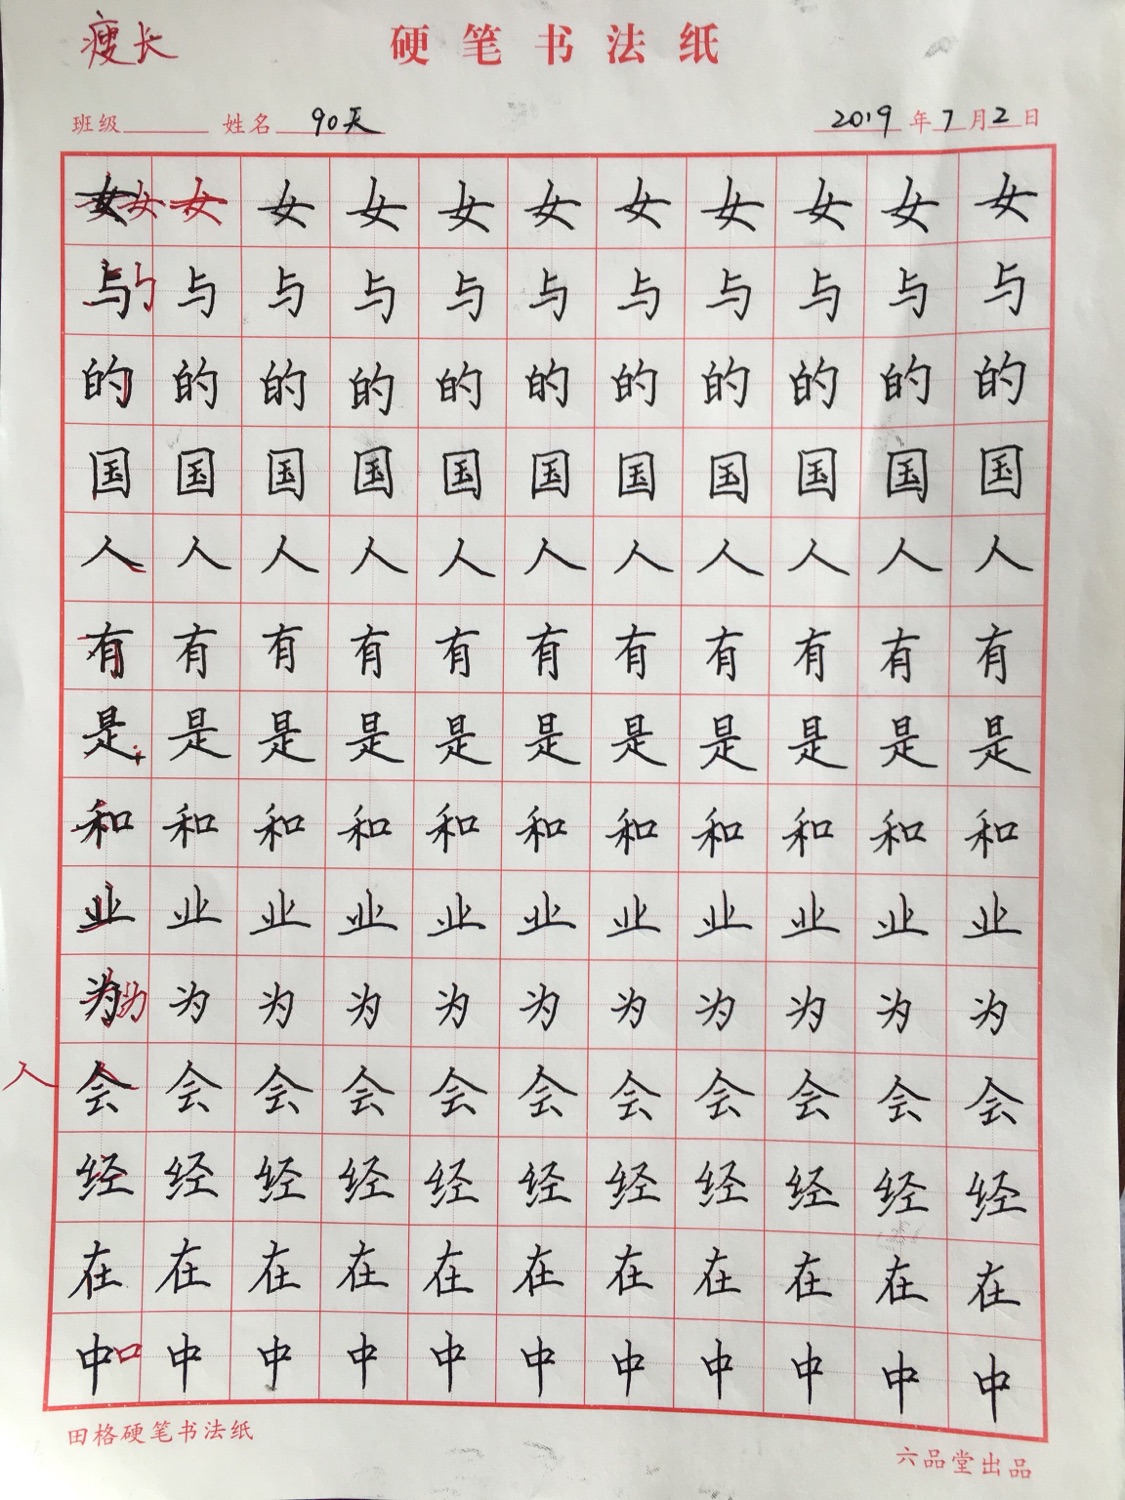 瘦长
硬笔书法纸
班级 姓名 90天 2019年7月2日
女女女女女女女女女女女女
与与与与与与与与与与与与
的的的的的的的的的的的
国国国国国国国国国国国
人人人人人人人人人人人
有有有有有有有有有有有
是是是是是是是是是是是
和和和和和和和和和和和
业业业业业业业业业业业
为为为为为为为为为为为为
人会会会会会会会会会会会
经经经经经经经经经经经
在在在在在在在在在在在
中口中中中中中中中中中中
田格硬笔书法纸
六品堂出品